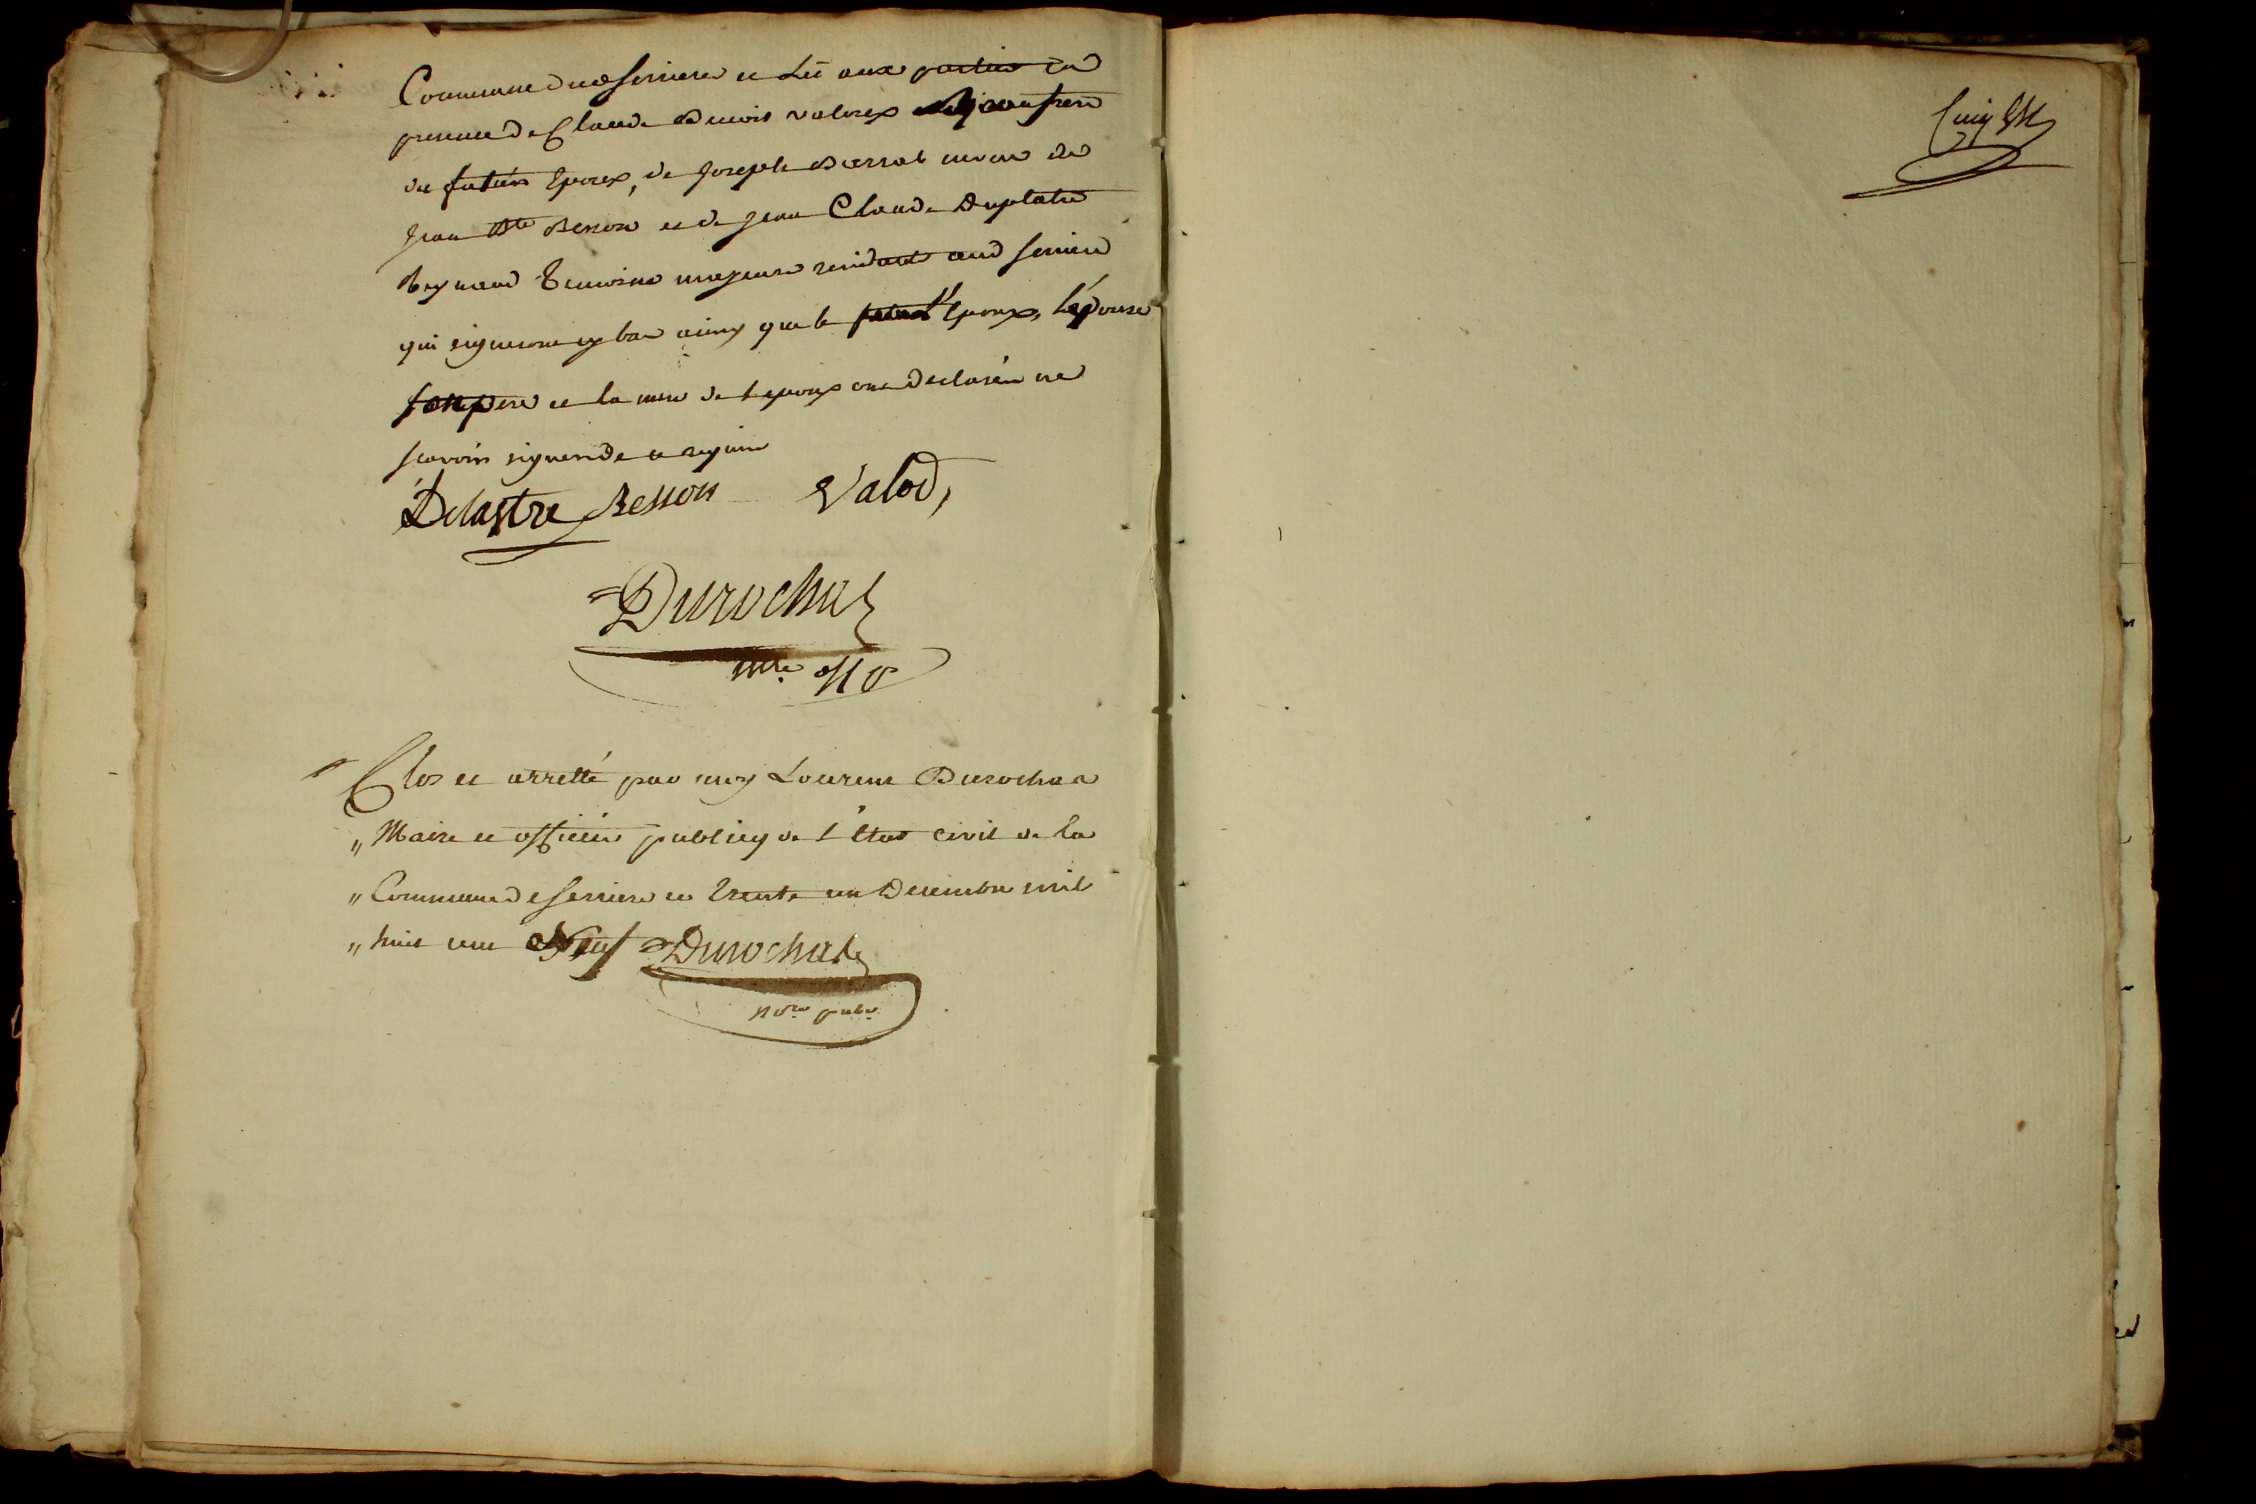 Commune de Serriere et Lû aux parties en
presence de Claude Benoit valod frere
du futur Epoux, de Joseph
Jean Bte Besson et de Jean Claude
temoins majeurs residant aud Serriere
qui signeront cy bas ainsy que l'Epoux, l'épouse
son pere et la mere de l'epoux ont declarée ne
scavoir signer de ce requis
Delastre Besson Valod,
Durochat
mre
Clos et arretté par moy Laurent Durochat
" Maire et officier publicq de l'Etat civil de la
" Commune de Serriere ce trente un Decembre mil
" huit cent Neuf Durochat